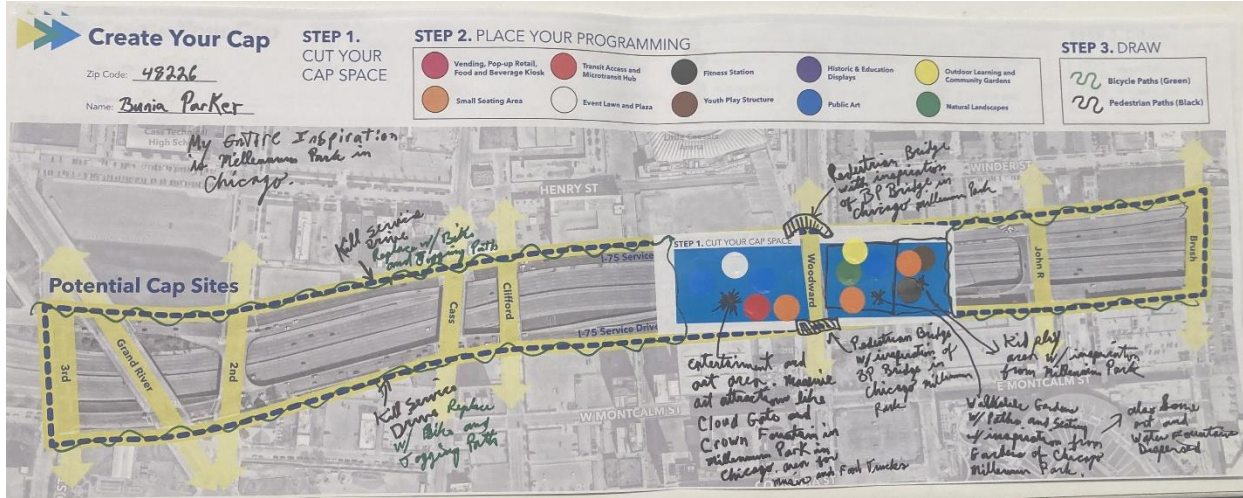 Create Your Cap
Zip Code: 48226
Name: Bunia Parker
STEP 1.
CUT YOUR
CAP SPACE
STEP 2. PLACE YOUR PROGRAMMING
Vending, Pop-up Retail,
Food and Beverage Kiosk
Transit Access and
Microtransit Hub
Fitness Station
Historic & Education
Displays
Outdoor Learning and
Community Gardens
Small Seating Area
Event Lawn and Plaza
Youth Play Structure
Public Art
Natural Landscapes
STEP 3. DRAW
Bicycle Paths (Green)
Pedestrian Paths (Black)
Cass Technical
High School
My Entire Inspiration
is Millennium Park in
Chicago.
Little Caesars
Arena
HENRY ST
WINDER ST
Pedestrian Bridge
with inspiration
of BP Bridge in
Chicago Millennium Park
Kill Service
Drive
Replace w/ Bike
and Jogging Path
Potential Cap Sites
I-75 Service
STEP 1. CUT YOUR CAP SPACE
3rd
Grand River
2nd
Cass
Clifford
Woodward
John R
Brush
I-75 Service Drive
Kill Service
Drive Replace
w/ Bike and
Jogging Path
W MONTCALM ST
E MONTCALM ST
Entertainment and
art area. Massive
art attractions like
Cloud Gate and
Crown Fountain in
Millennium Park in
Chicago. area for
music and Food Trucks
Pedestrian Bridge
w/ inspiration of
BP Bridge in
Chicago Millennium
Park
Kid play
area w/ inspiration
from Millennium Park
Walkable Garden
w/ Paths and Seating
w/ inspiration from
Gardens of Chicago
Millennium Park.
also some
art and
Water Fountains
Dispersed